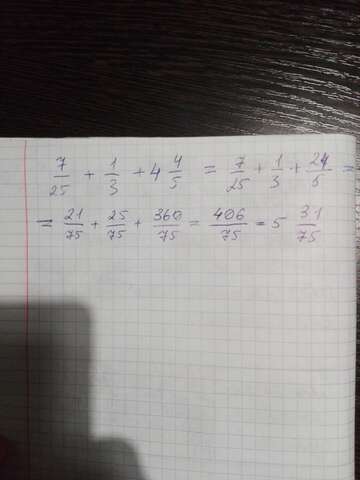 7/25 + 1/3 + 4 4/5 = 7/25 + 1/3 + 24/5 =
= 21/75 + 25/75 + 360/75 = 406/75 = 5 31/75